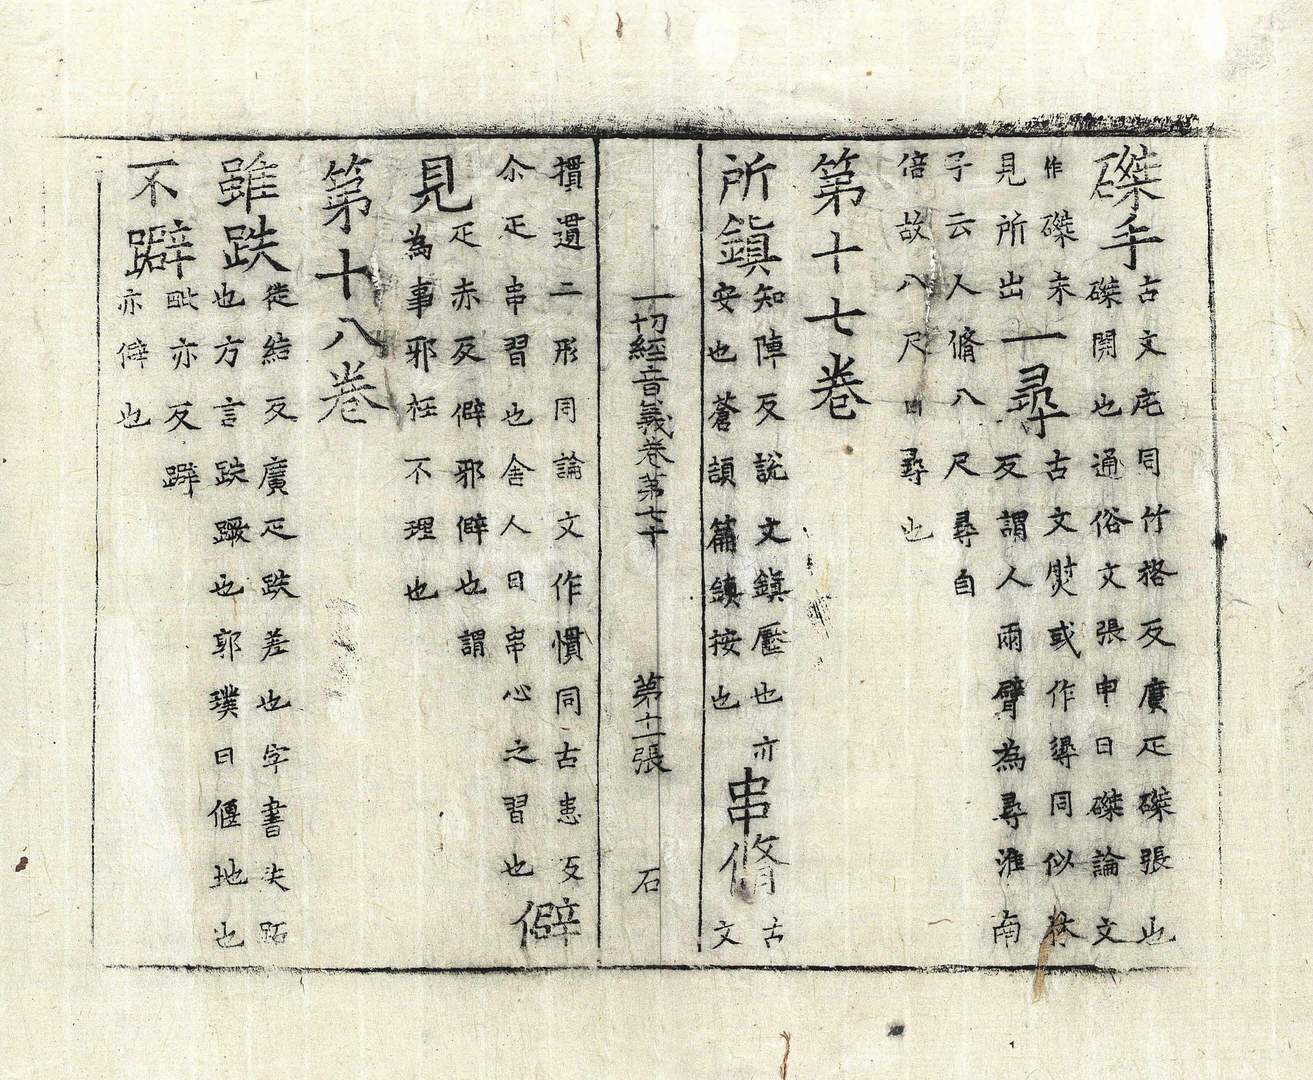 磔手古文庉同竹格反廣疋磔張也
磔開也通俗文張申曰磔論文
作磔未一尋古文㷉或作㝷同似林
見所出反謂人兩臂為尋淮南
子云人脩八尺尋自
倍故八尺曰尋也
第十七卷
所鎮知陣反說文鎮壓也亦串脩古
安也蒼頡篇鎮按也文
一切經音義卷第七十 第十二張 石
摜遺二形同論文作慣同古患反
尒疋串習也舍人曰串心之習也僻
見疋赤反僻邪僻也謂
為事邪枉不理也
第十八卷
雖跌徒結反廣疋跌差也字書失跖
也方言跌蹶也郭璞曰偃地也
不躃毗亦反躃
亦僻也